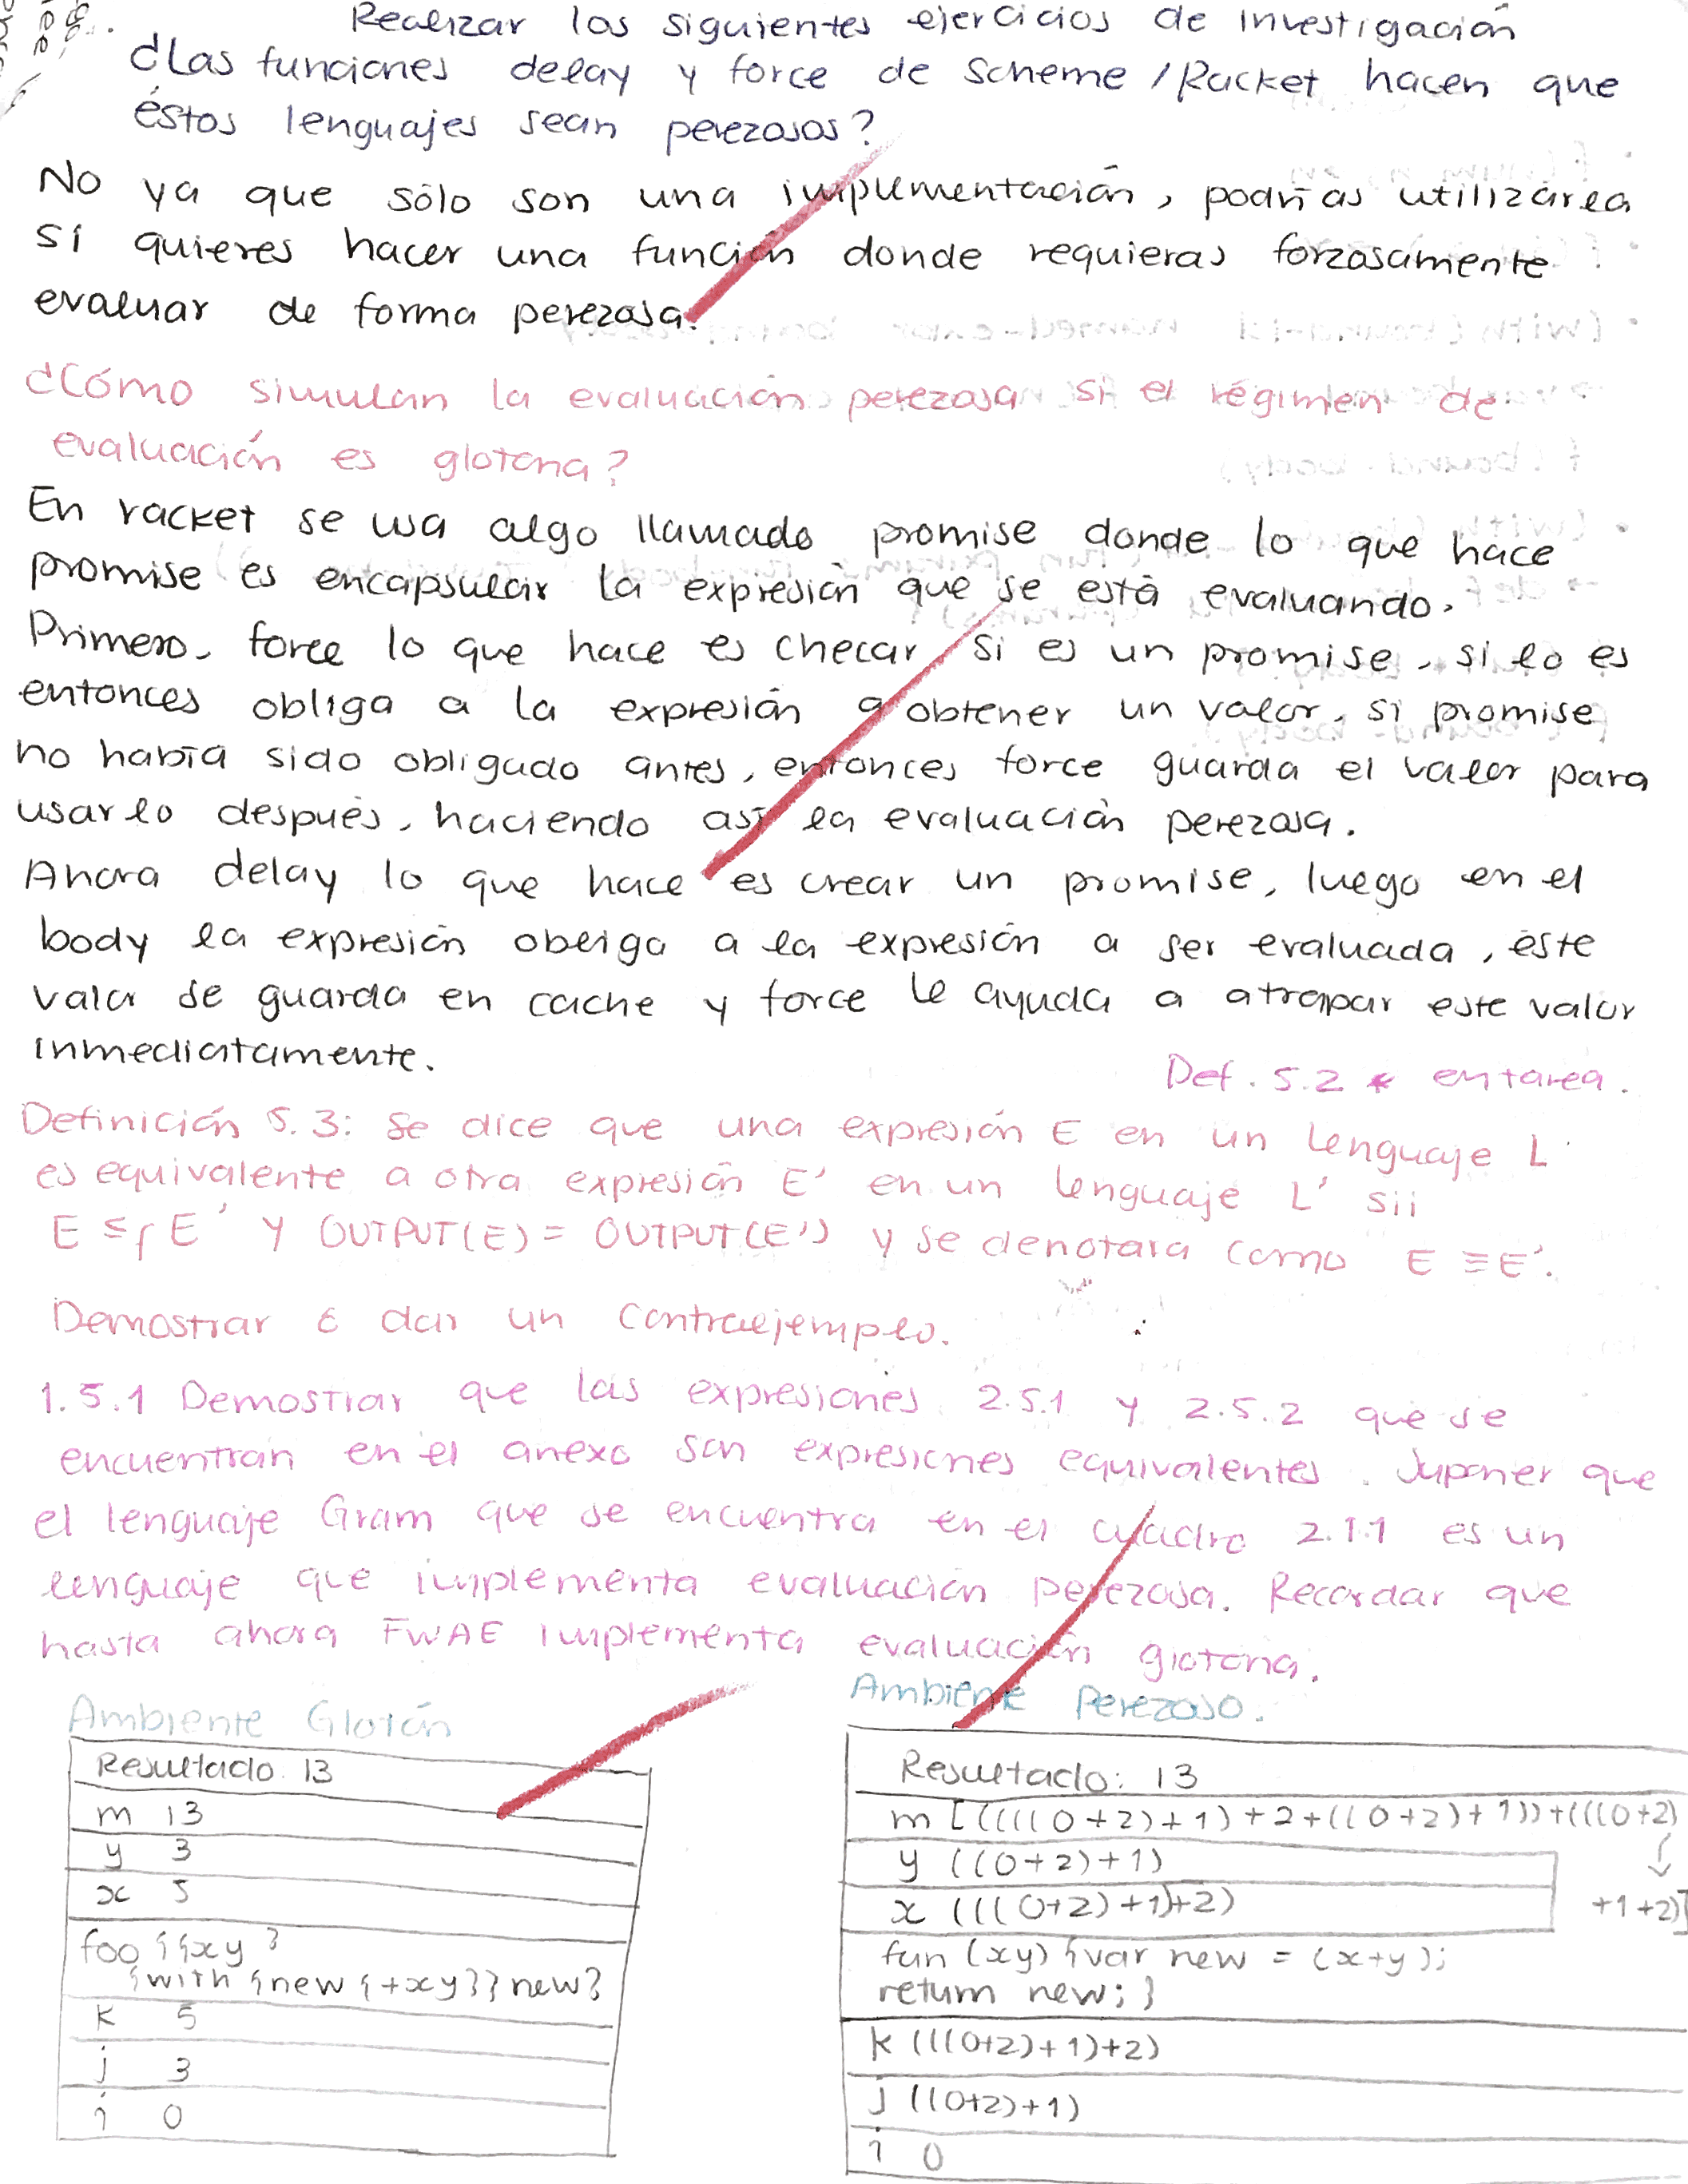 Realizar los siguientes ejercicios de investigación
¿Las funciones delay y force de Scheme/Racket hacen que
éstos lenguajes sean perezosos?
No ya que sólo son una implementación, podrías utilizarla
si quieres hacer una función donde requieras forzosamente
evaluar de forma perezosa.
¿Cómo simulan la evaluación perezosa si el régimen de
evaluación es glotona?
En racket se usa algo llamado promise donde lo que hace
promise es encapsular la expresión que se está evaluando.
Primero, force lo que hace es checar si es un promise, si lo es
entonces obliga a la expresión a obtener un valor, si promise
no había sido obligado antes, entonces force guarda el valor para
usarlo después, haciendo así la evaluación perezosa.
Ahora delay lo que hace es crear un promise, luego en el
body la expresión obliga a la expresión a ser evaluada, éste
valor se guarda en cache y force le ayuda a atrapar este valor
inmediatamente.
Def. 5.2 * en tarea.
Definición 5.3: Se dice que una expresión E en un lenguaje L
es equivalente a otra expresión E' en un lenguaje L' sii
E ≤f E' y OUTPUT(E) = OUTPUT(E') y se denotara como E ≡ E'.
Demostrar ó dar un contraejemplo.
1.5.1 Demostrar que las expresiones 2.5.1 y 2.5.2 que se
encuentran en el anexo son expresiones equivalentes. Suponer que
el lenguaje Gram que se encuentra en el cuadro 2.1.1 es un
lenguaje que implementa evaluación perezosa. Recordar que
hasta ahora FWAE implementa evaluación glotona.
Ambiente Glotón
Resultado 13
m 13
y 3
x 5
foo {{xy}
{with {new {+xy}} new}
k 5
j 3
i 0
Ambiente Perezoso.
Resultado: 13
m [((((0+2)+1)+2+((0+2)+1))+(((0+2)
+1+2)]
y ((0+2)+1)
x (((0+2)+1)+2)
fun (xy) {var new = (x+y);
return new; }
k (((0+2)+1)+2)
j ((0+2)+1)
i 0